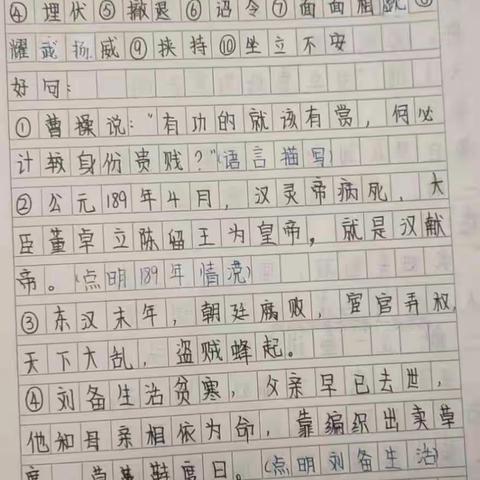 ④埋伏⑤撤退⑥诏令⑦面面相觑⑧
耀武扬威⑨挟持⑩坐立不安
好句：
①曹操说："有功的就该有赏，何必
计较身份贵贱？"(语言描写)
②公元189年4月，汉灵帝病死，大
臣董卓立陈留王为皇帝，就是汉献
帝。(点明189年情况)
③东汉末年，朝廷腐败，宦官弄权，
天下大乱，盗贼蜂起。
④刘备生活贫寒，父亲早已去世，
他和母亲相依为命，靠编织出卖草
席、草鞋度日。(点明刘备生活